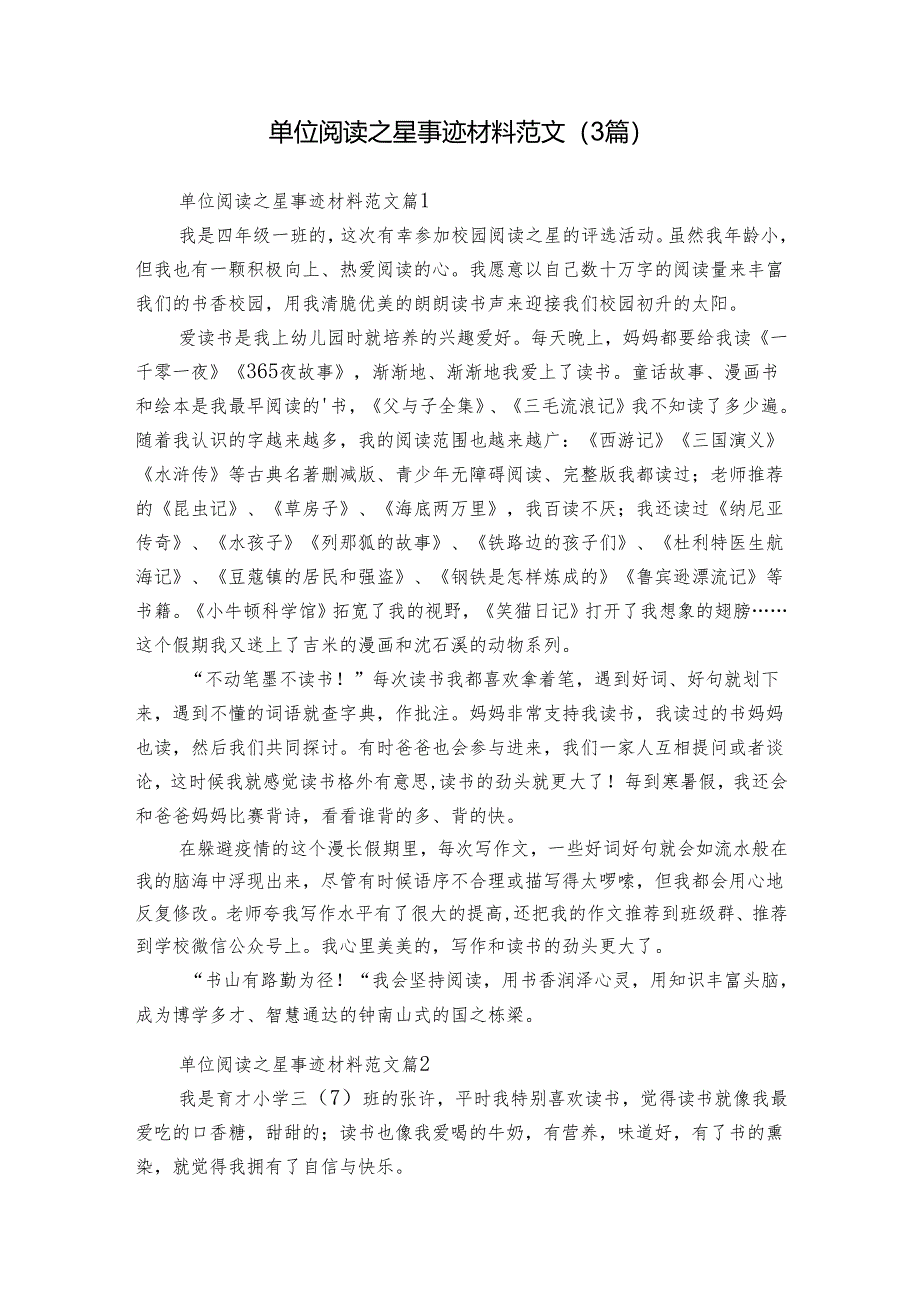 单位阅读之星事迹材料范文（3篇）
单位阅读之星事迹材料范文篇1
我是四年级一班的，这次有幸参加校园阅读之星的评选活动。虽然我年龄小，
但我也有一颗积极向上、热爱阅读的心。我愿意以自己数十万字的阅读量来丰富
我们的书香校园，用我清脆优美的朗朗读书声来迎接我们校园初升的太阳。
爱读书是我上幼儿园时就培养的兴趣爱好。每天晚上，妈妈都要给我读《一
千零一夜》《365夜故事》，渐渐地、渐渐地我爱上了读书。童话故事、漫画书
和绘本是我最早阅读的'书，《父与子全集》、《三毛流浪记》我不知读了多少遍。
随着我认识的字越来越多，我的阅读范围也越来越广：《西游记》《三国演义》
《水浒传》等古典名著删减版、青少年无障碍阅读、完整版我都读过；老师推荐
的《昆虫记》、《草房子》、《海底两万里》，我百读不厌；我还读过《纳尼亚
传奇》、《水孩子》《列那狐的故事》、《铁路边的孩子们》、《杜利特医生航
海记》、《豆蔻镇的居民和强盗》、《钢铁是怎样炼成的》《鲁宾逊漂流记》等
书籍。《小牛顿科学馆》拓宽了我的视野，《笑猫日记》打开了我想象的翅膀……
这个假期我又迷上了吉米的漫画和沈石溪的动物系列。
“不动笔墨不读书！”每次读书我都喜欢拿着笔，遇到好词、好句就划下
来，遇到不懂的词语就查字典，作批注。妈妈非常支持我读书，我读过的书妈妈
也读，然后我们共同探讨。有时爸爸也会参与进来，我们一家人互相提问或者谈
论，这时候我就感觉读书格外有意思,读书的劲头就更大了！每到寒暑假，我还会
和爸爸妈妈比赛背诗，看看谁背的多、背的快。
在躲避疫情的这个漫长假期里，每次写作文，一些好词好句就会如流水般在
我的脑海中浮现出来，尽管有时候语序不合理或描写得太啰嗦，但我都会用心地
反复修改。老师夸我写作水平有了很大的提高,还把我的作文推荐到班级群、推荐
到学校微信公众号上。我心里美美的，写作和读书的劲头更大了。
“书山有路勤为径！“我会坚持阅读，用书香润泽心灵，用知识丰富头脑，
成为博学多才、智慧通达的钟南山式的国之栋梁。
单位阅读之星事迹材料范文篇2
我是育才小学三（7）班的张许，平时我特别喜欢读书，觉得读书就像我最
爱吃的口香糖，甜甜的；读书也像我爱喝的牛奶，有营养，味道好，有了书的熏
染，就觉得我拥有了自信与快乐。